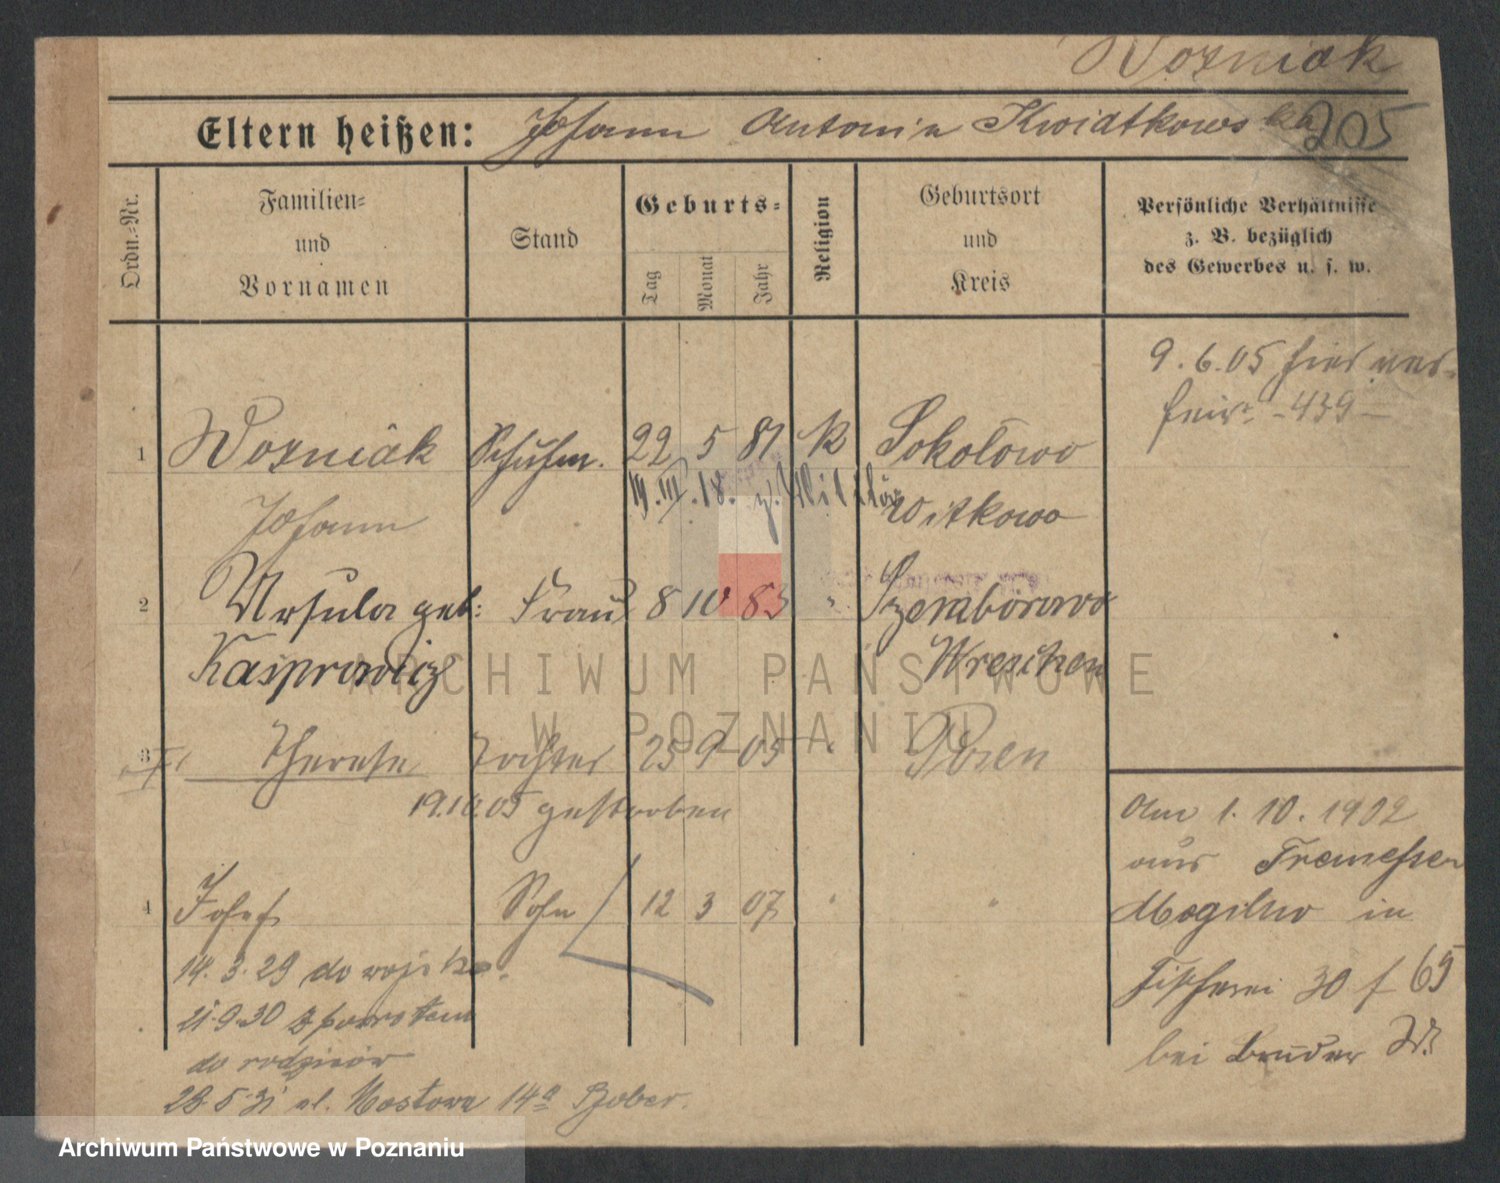 Wozniak
Eltern heißen: Johann Antonia Kwiatkowska 205
Ordn.-Nr.
Familien-
und
Vornamen
Stand
Geburts-
Tag
Monat
Jahr
Religion
Geburtsort
und
Kreis
Persönliche Verhältnisse
z. B. bezüglich
des Gewerbes u. s. w.
9.6.05 hier ver-
heir. -439-
1 Wozniak Schuhm. 22 5 81 K Sokolowo
Johann Witkowo
2 Ursula geb: Frau 8 10 83 " Szemborowo
Kasprowicz Wreschen
3 Therese Tochter 25 9 05 " Posen
19.10.05 gestorben
4 Josef Sohn 12 3 07 " "
14.3.29 do wojska.
21.9.30 z powrotem
do rodziców
28.5.31 ul. Mostowa 14a Bober.
Am 1.10.1902
aus Tremessen
Mogilno in
Fischerei 30 f 65
bei Bruder W.
ARCHIWUM PAŃSTWOWE
W POZNANIU
Archiwum Państwowe w Poznaniu